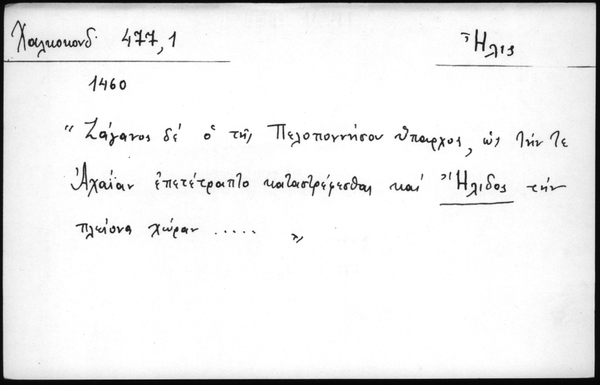 Χαλκοκονδ. 477,1
Ἦλις
1460
“ Ζάγανος δέ ὁ τῆς Πελοποννήσου ὕπαρχος, ὡς τήν τε
Ἀχαΐαν ἐπετέτραπτο καταστρέφεσθαι καί Ἤλιδος τήν
πλείονα χώραν ..... ”